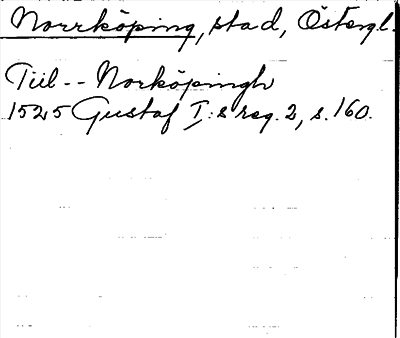 Norrköping, stad, Östergl.
Tiil -- Norköpingh
1525 Gustaf I:s reg. 2, s. 160.